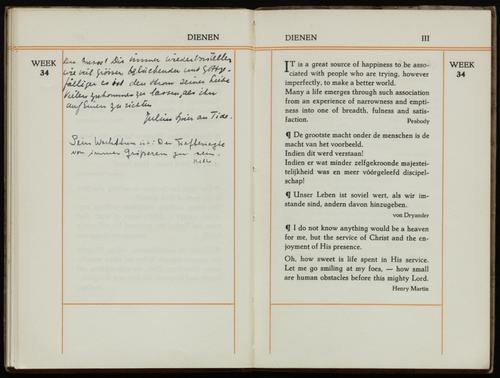 DIENEN
WEEK
34
Du musst Dir immer wieder
wie viel grösser, beglückender und
es ist den Strom seiner Liebe
zu lassen, als ihn
auf Einen zu richten
Julius Spier an Tide.
Sein Wachsthum ist: Der Tiefbesiegte
von immer Größerem zu sein.
Rilke.
DIENEN III
WEEK
34
IT is a great source of happiness to be asso-
ciated with people who are trying, however
imperfectly, to make a better world.
Many a life emerges through such association
from an experience of narrowness and empti-
ness into one of breadth, fulness and satis-
faction.
Peabody
¶ De grootste macht onder de menschen is de
macht van het voorbeeld.
Indien dit werd verstaan!
Indien er wat minder zelfgekroonde majestei-
telijkheid was en meer vóórgeleefd discipel-
schap!
¶ Unser Leben ist soviel wert, als wir im-
stande sind, andern davon hinzugeben.
von Dryander
¶ I do not know anything would be a heaven
for me, but the service of Christ and the en-
joyment of His presence.
Oh, how sweet is life spent in His service.
Let me go smiling at my foes, — how small
are human obstacles before this mighty Lord.
Henry Martin